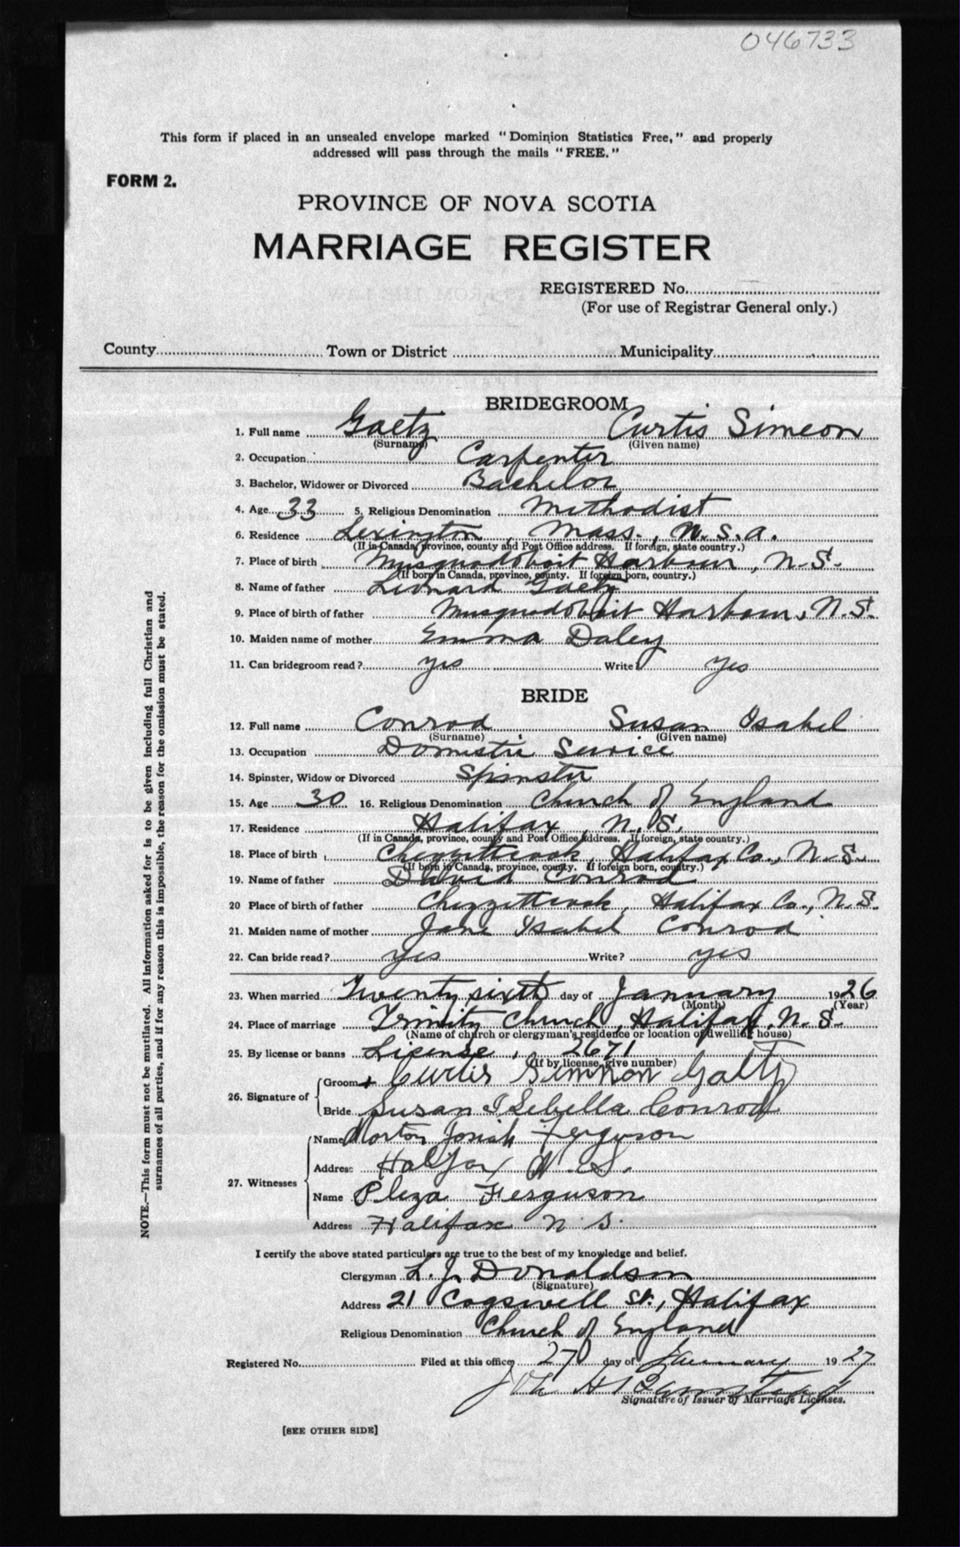 046733
This form if placed in an unsealed envelope marked "Dominion Statistics Free," and properly
addressed will pass through the mails "FREE."
FORM 2.
PROVINCE OF NOVA SCOTIA
MARRIAGE REGISTER
REGISTERED No.
(For use of Registrar General only.)
County Town or District Municipality
BRIDEGROOM
1. Full name Gaetz Curtis Simeon
(Surname) (Given name)
2. Occupation Carpenter
3. Bachelor, Widower or Divorced Bachelor
4. Age 33 5. Religious Denomination Methodist
6. Residence Lexington, Mass., U.S.A.
(If in Canada, province, county and Post Office address. If foreign, state country.)
7. Place of birth Musquodoboit Harbour, N.S.
(If born in Canada, province, county. If foreign born, country.)
8. Name of father Leonard Gaetz
9. Place of birth of father Musquodoboit Harbour, N.S.
10. Maiden name of mother Emma Daley
11. Can bridegroom read? yes Write? yes
BRIDE
12. Full name Conrod Susan Isabel
(Surname) (Given name)
13. Occupation Domestic Service
14. Spinster, Widow or Divorced Spinster
15. Age 30 16. Religious Denomination Church of England
17. Residence Halifax, N.S.
(If in Canada, province, county and Post Office Address. If foreign, state country.)
18. Place of birth Chezzetcook, Halifax Co., N.S.
(If born in Canada, province, county. If foreign born, country.)
19. Name of father David Conrod
20 Place of birth of father Chezzetcook, Halifax Co., N.S.
21. Maiden name of mother Jane Isabel Conrod
22. Can bride read? yes Write? yes
23. When married Twenty sixth day of January 1926
(Month) (Year)
24. Place of marriage Trinity Church, Halifax, N.S.
(Name of church or clergyman's residence or location of dwelling house)
25. By license or banns License, 2671
(If by license, give number)
26. Signature of
Groom Curtis Gaetz
Bride Susan Isebella Conrod
27. Witnesses
Name Morton Josiah Ferguson
Address Halifax N.S.
Name Ferguson
Address Halifax N.S.
I certify the above stated particulars are true to the best of my knowledge and belief.
Clergyman L. J. Donaldson
(Signature)
Address 21 Cogswell St., Halifax
Religious Denomination Church of England
Registered No. Filed at this office 27 day of January 1927
Signature of Issuer of Marriage Licenses.
[SEE OTHER SIDE]
NOTE.—This form must not be mutilated. All information asked for is to be given including full Christian and
surnames of all parties, and if for any reason this is impossible, the reason for the omission must be stated.